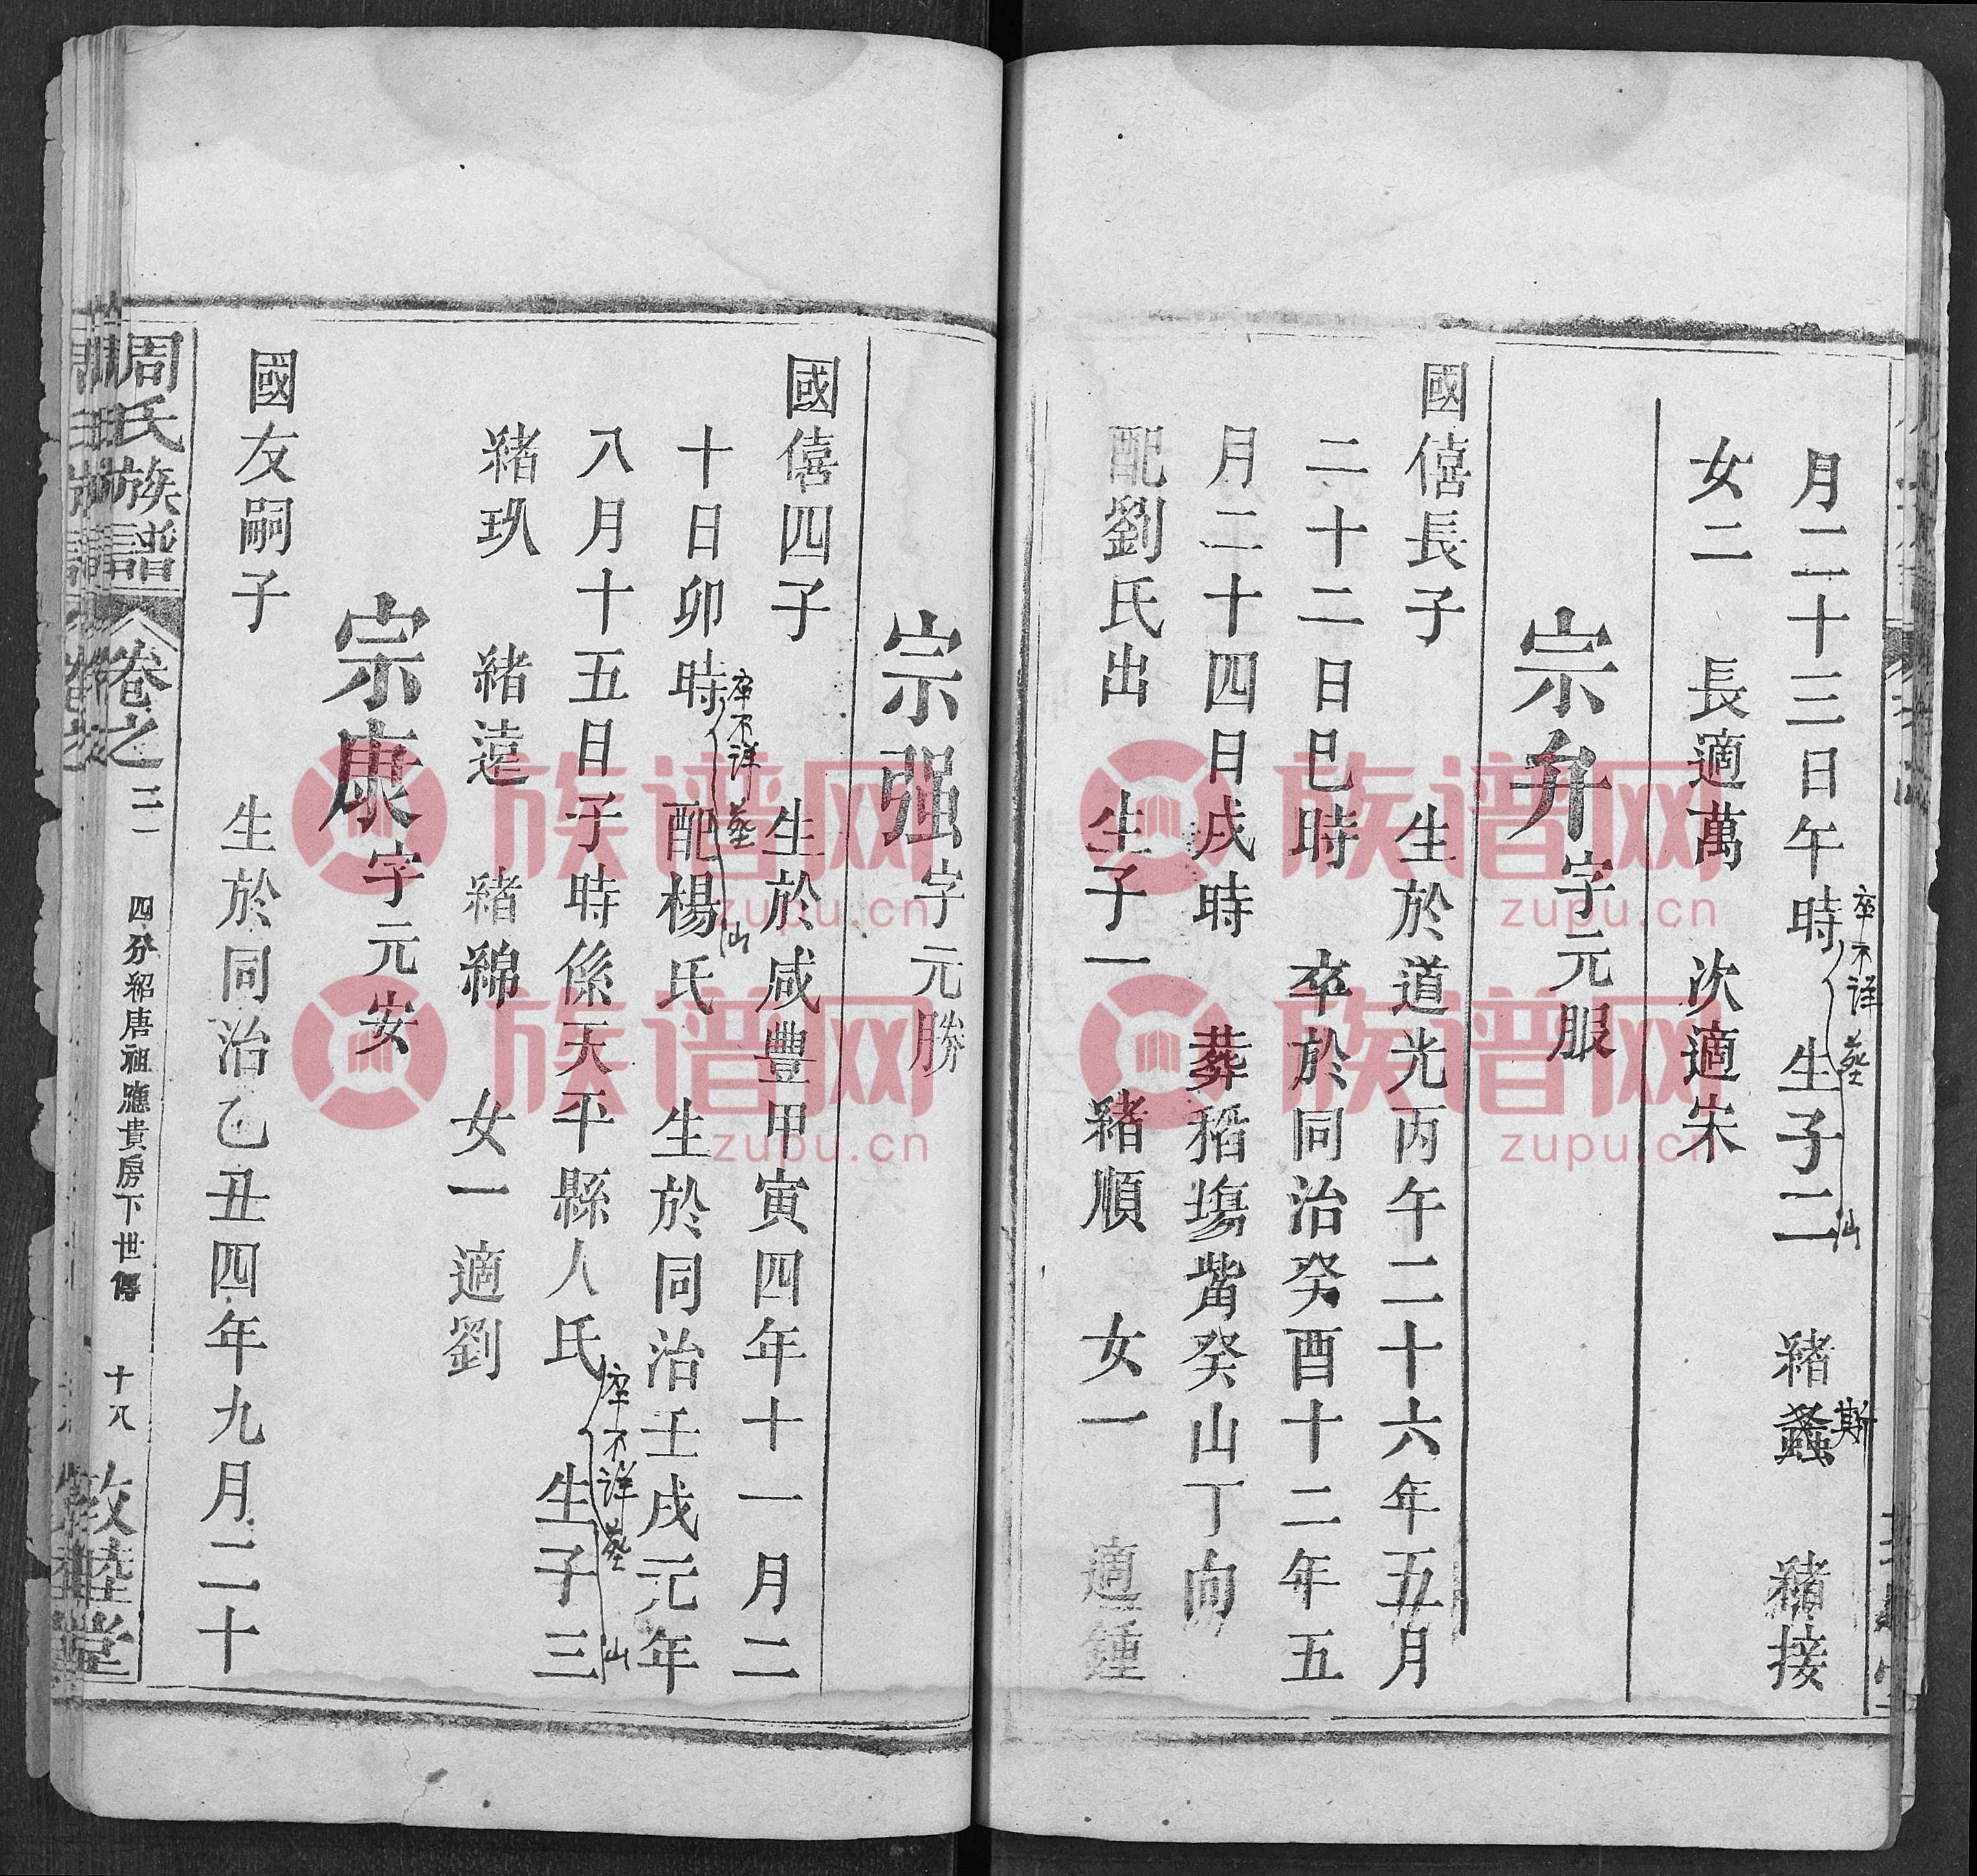 月二十三日午時 生子二 緒螽 緒接
卒不詳 葬 山
斯
女二 長適萬 次適宋
宗弁字元服
國僖長子 生於道光丙午二十六年五月
二十二日巳時 卒於同治癸酉十二年五
月二十四日戌時 葬稻塲觜癸山丁向
配劉氏出 生子一 緒順 女一 適鍾
宗强字元勝
國僖四子 生於咸豐甲寅四年十一月二
十日卯時 配楊氏 生於同治壬戌元年
卒不詳 葬 山
八月十五日子時係天平縣人氏 生子三
卒不詳 葬 山
緒玖 緒遠 緒綿 女一 適劉
宗康字元安
國友嗣子 生於同治乙丑四年九月二十
周氏族譜 卷之三一 四分紹唐祖應貴房下世傳 十八 敦睦堂
族谱网
zupu.cn
族谱网
zupu.cn
族谱网
zupu.cn
族谱网
zupu.cn